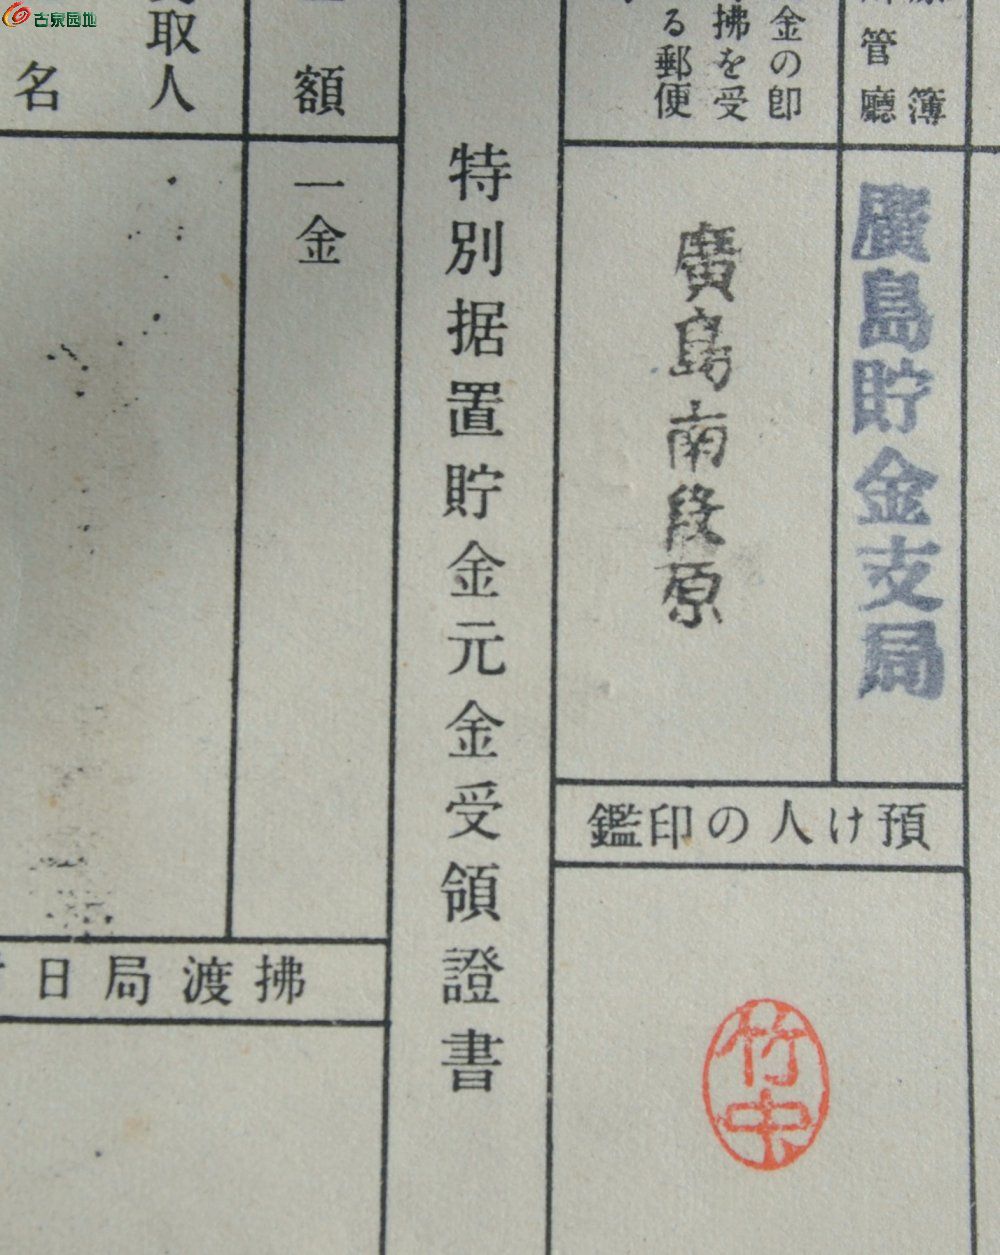 古泉园地
簿
管廳
廣島貯金支局
金の卽
拂を受
る郵便
廣島南段原
預け人の印鑑
竹中
特別据置貯金元金受領證書
額
一金
取人
名
拂渡局日